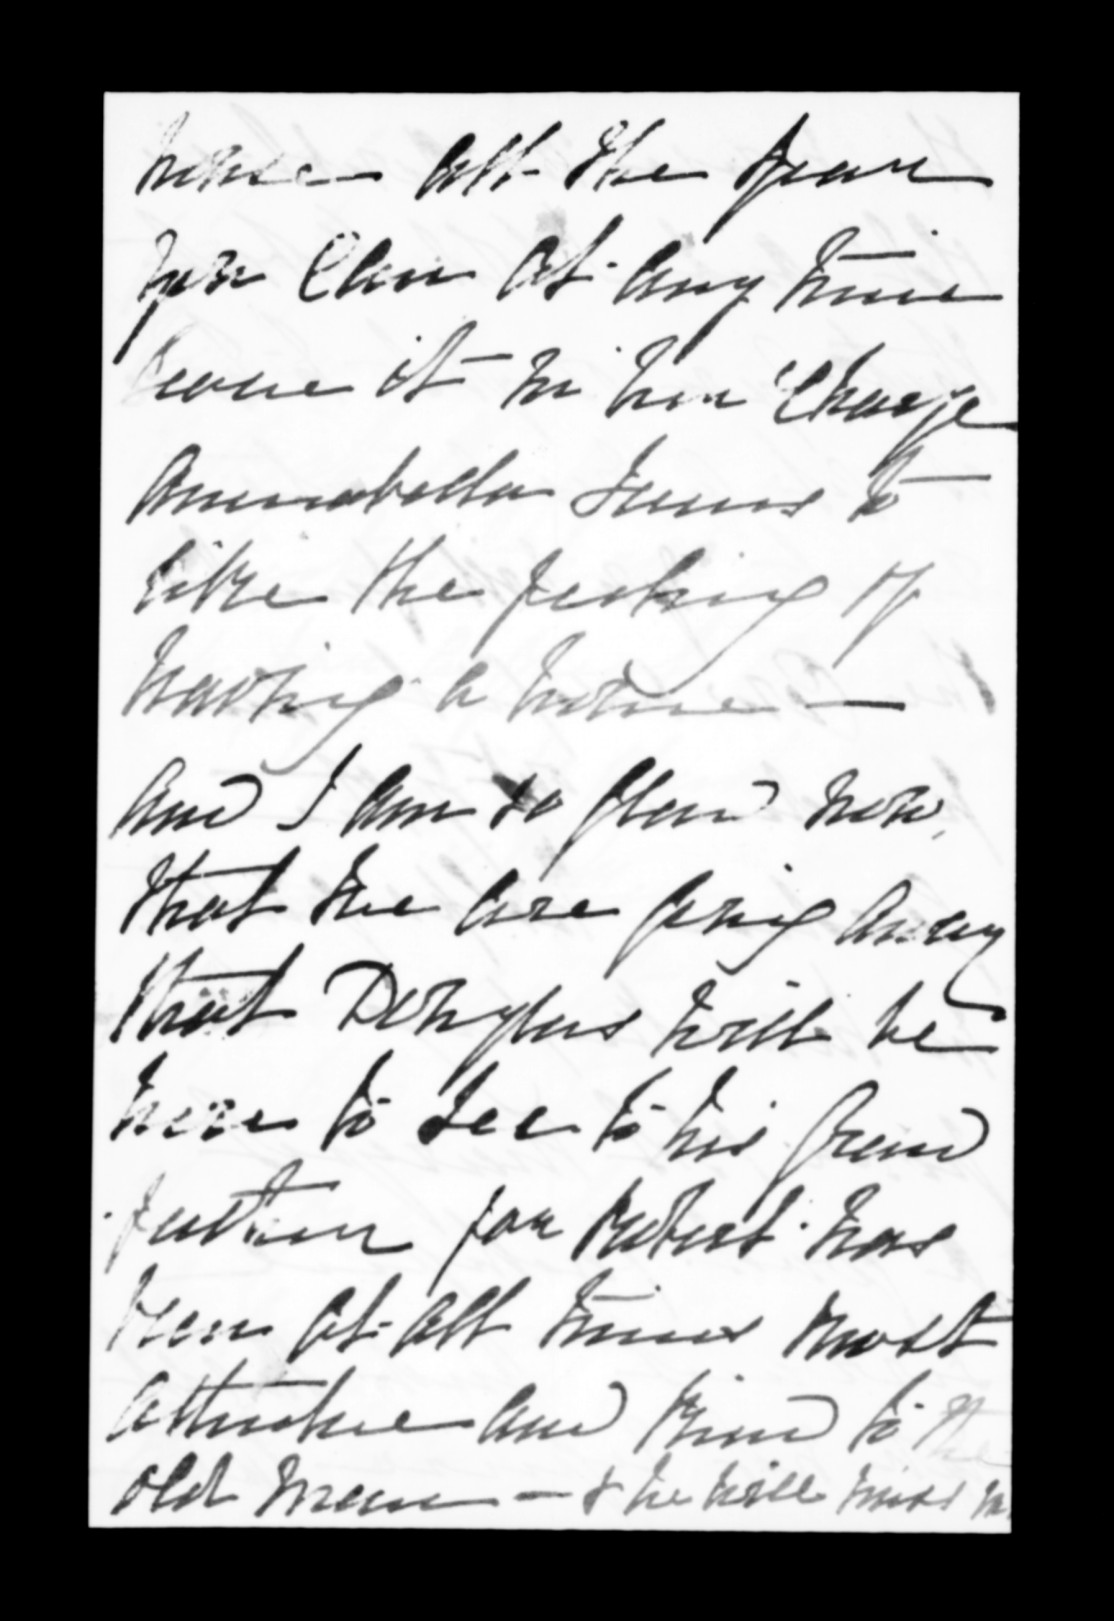 house all the year
you can at any time
leave it in her charge
Annabella seems to
like the feeling of
having a home —
and I am so glad now,
that we are going away
that Douglas will be
here to see to his Grand
father for Robert has
been at all times most
attentive and kind to the
old man — & he will miss